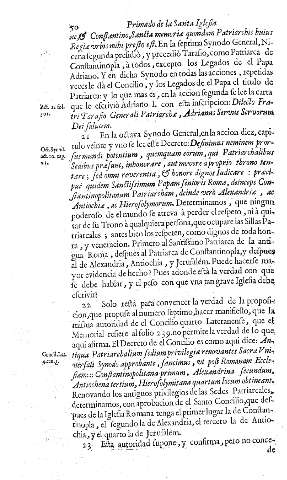 50 Primado de la Santa Iglesia
Constantino, Sancta memoria quondam Patriarchis huius
Regia urbis præfuit. En la septima Synodo General, Ni-
cena segunda presidió, y precedió Tarasio, como Patriarca de
Constantinopla, à todos, excepto los Legados del Papa
Adriano. Y en dicha Synodo en todas las acciones, repetidas
vezes le dà el Concilio, y los Legados del Papa el titulo de
Patriarca: y lo que mas es, en la accion segunda se lee la carta
que le escrivió Adriano I. con esta inscripcion: Dilecto Fra-
tri Tarasio Generali Patriarchæ, Adrianus Servus Servorum
Dei salutem.
21 En la octava Synodo General, en la accion diez, capi-
tulo veinte y uno se lee este Decreto: Definimus neminem pror-
sus mundi potentium, quemquam eorum, qui Patriarchalibus
Sedibus præsunt, inhonorare, aut movere à proprio throno ten-
tare; sed omni reverentia, & honore dignos iudicare: præci-
puè quidem Sanctissimum Papam senioris Romæ, deinceps Con-
stantinopoleos Patriarcham, deinde verò Alexandriæ, ac
Antiochiæ, ac Hierosolymorum. Determinamos, que ningun
poderoso de el mundo se atreva à perder el respeto, ni à qui-
tar de su Trono à qualquiera persona, que ocupare las Sillas Pa-
triarcales; antes bien los respeten, como dignos de toda hon-
ra, y veneracion. Primero al Santissimo Patriarca de la anti-
gua Roma, despues al Patriarca de Constantinopla, y despues
al de Alexandria, Antiochia, y Jerusalèm. Puede hacerse ma-
yor evidencia de hecho? Pues adonde està la verdad con que
se debe hablar, y el peso con que una tan grave Iglesia debe
escrivir?
22 Solo resta para convencer la verdad de la proposi-
cion, que propuse al numero septimo, hacer manifiesto, que la
misma autoridad de el Concilio quarto Lateranense, que el
Memorial refiere al folio 239. no permite la verdad de lo que
aqui afirma. El Decreto de el Concilio es como aqui dice: An-
tiqua Patriarchalium sedium privilegia renovantes Sacra Uni-
versali Synodo approbante, sancimus, ut post Romanam Eccle-
siam::: Constantinopolitana primum, Alexandrina secundum,
Antiochena tertium, Hierosolymitana quartum locum obtineant.
Renovando los antiguos privilegios de las Sedes Patriarcales,
determinamos, con aprobacion de el Santo Concilio, que des-
pues de la Iglesia Romana tenga el primer lugar la de Constan-
tinopla, el segundo la de Alexandria, el tercero la de Antio-
chia, y el quarto la de Jerusalèm.
23 Esta autoridad supone, y confirma, pero no conce-
de